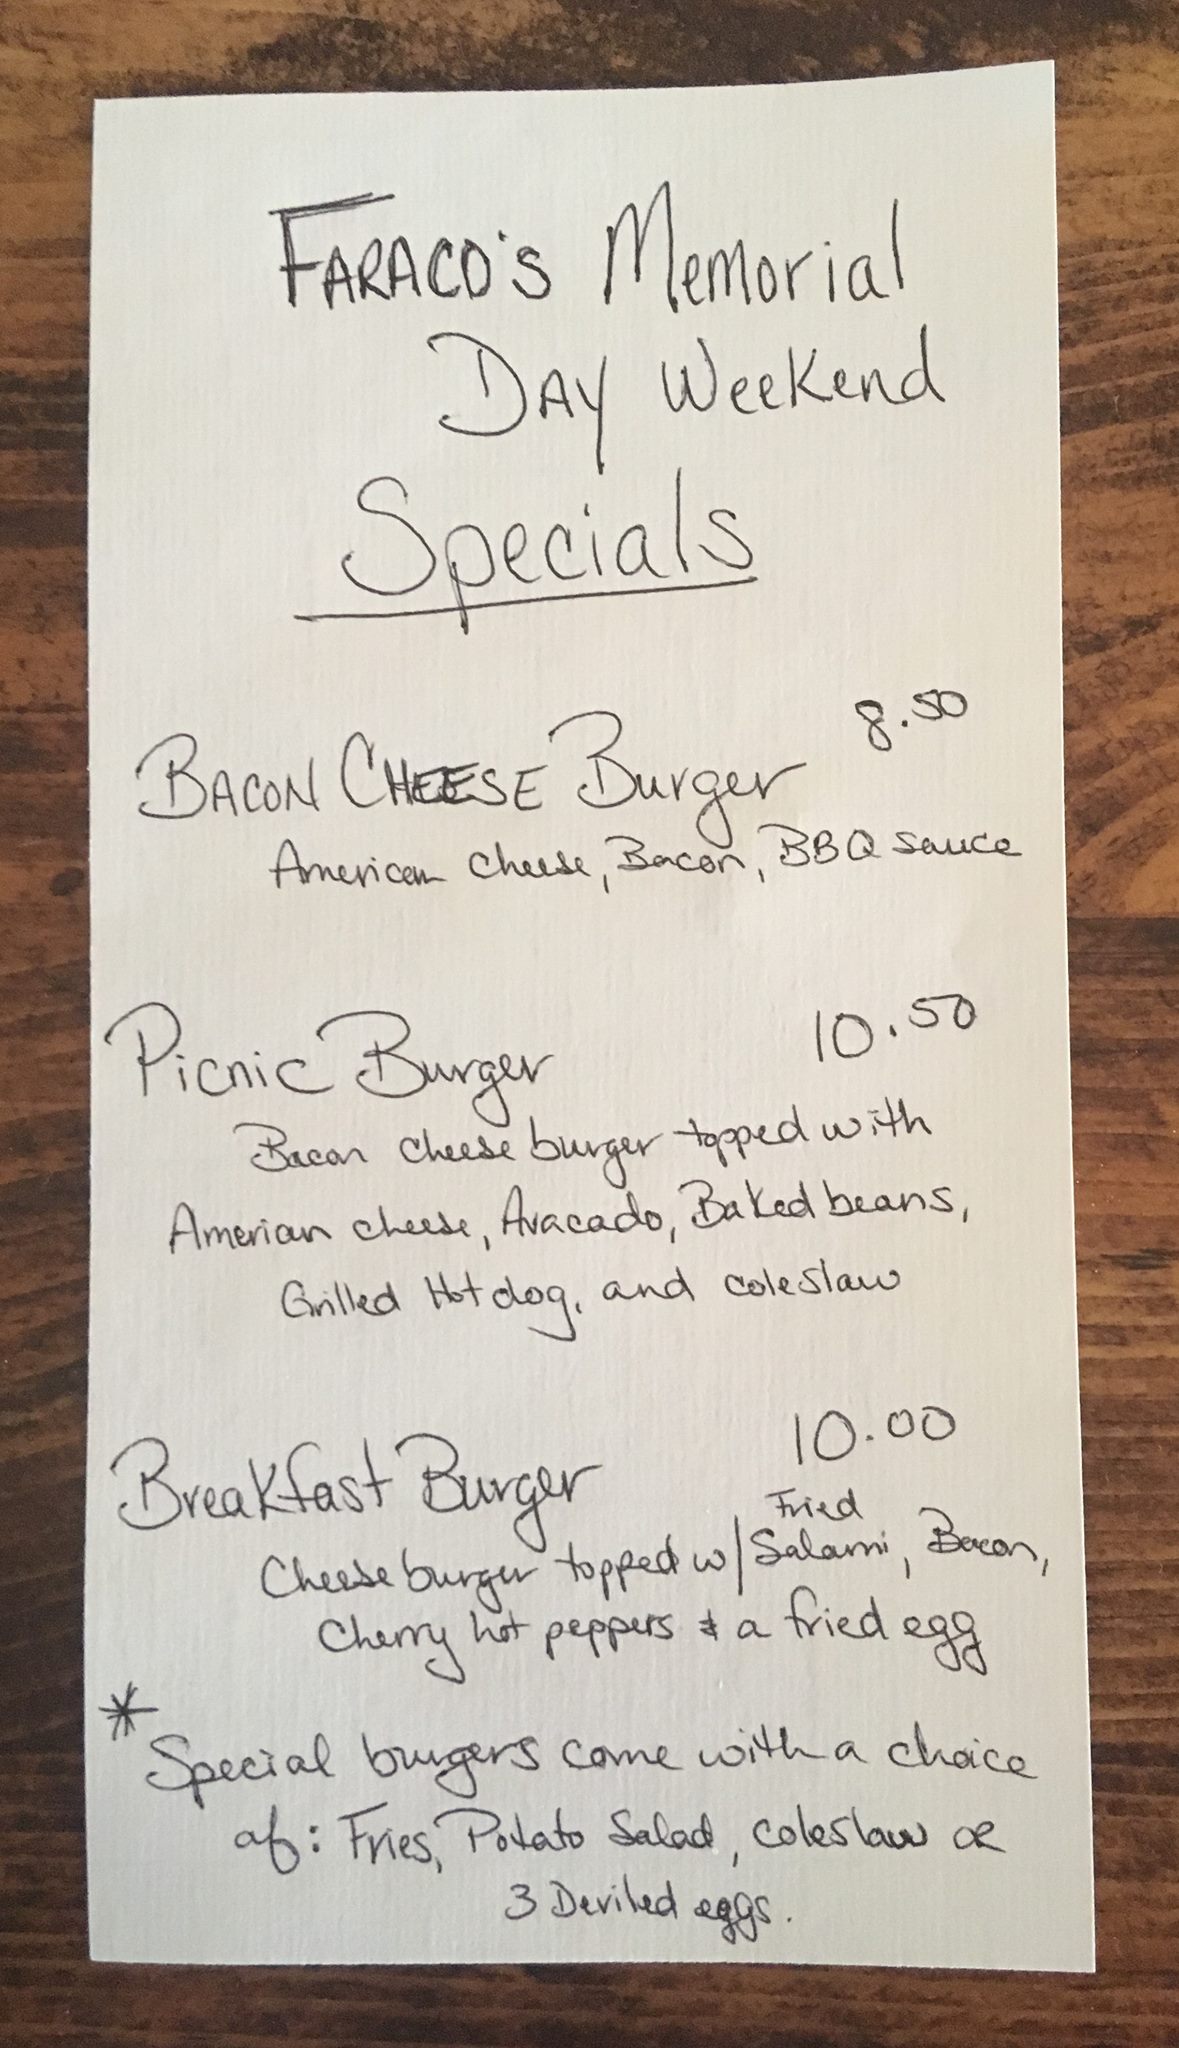 FARACO's Memorial
DAY Weekend
Specials
BACON CHEESE Burger 8.50
American cheese, Bacon, BBQ sauce
Picnic Burger 10.50
Bacon cheese burger topped with
Amerian cheese, Avacado, Baked beans,
Grilled Hot dog, and coleslaw
Breakfast Burger 10.00
Fried
Cheese burger topped w/ Salami, Bacon,
Cherry hot peppers & a fried egg
* Special burgers come with a choice
of: Fries, Potato Salad, coleslaw OR
3 Deviled eggs.